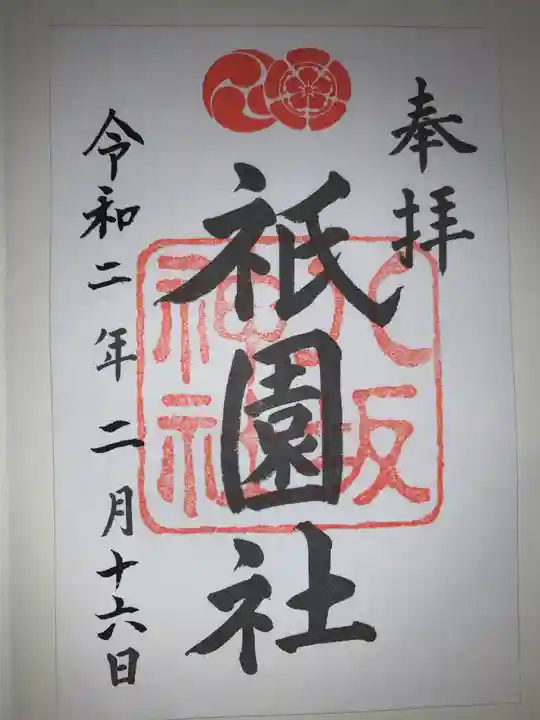 奉拝
祇園社
八坂
神社
令和二年二月十六日